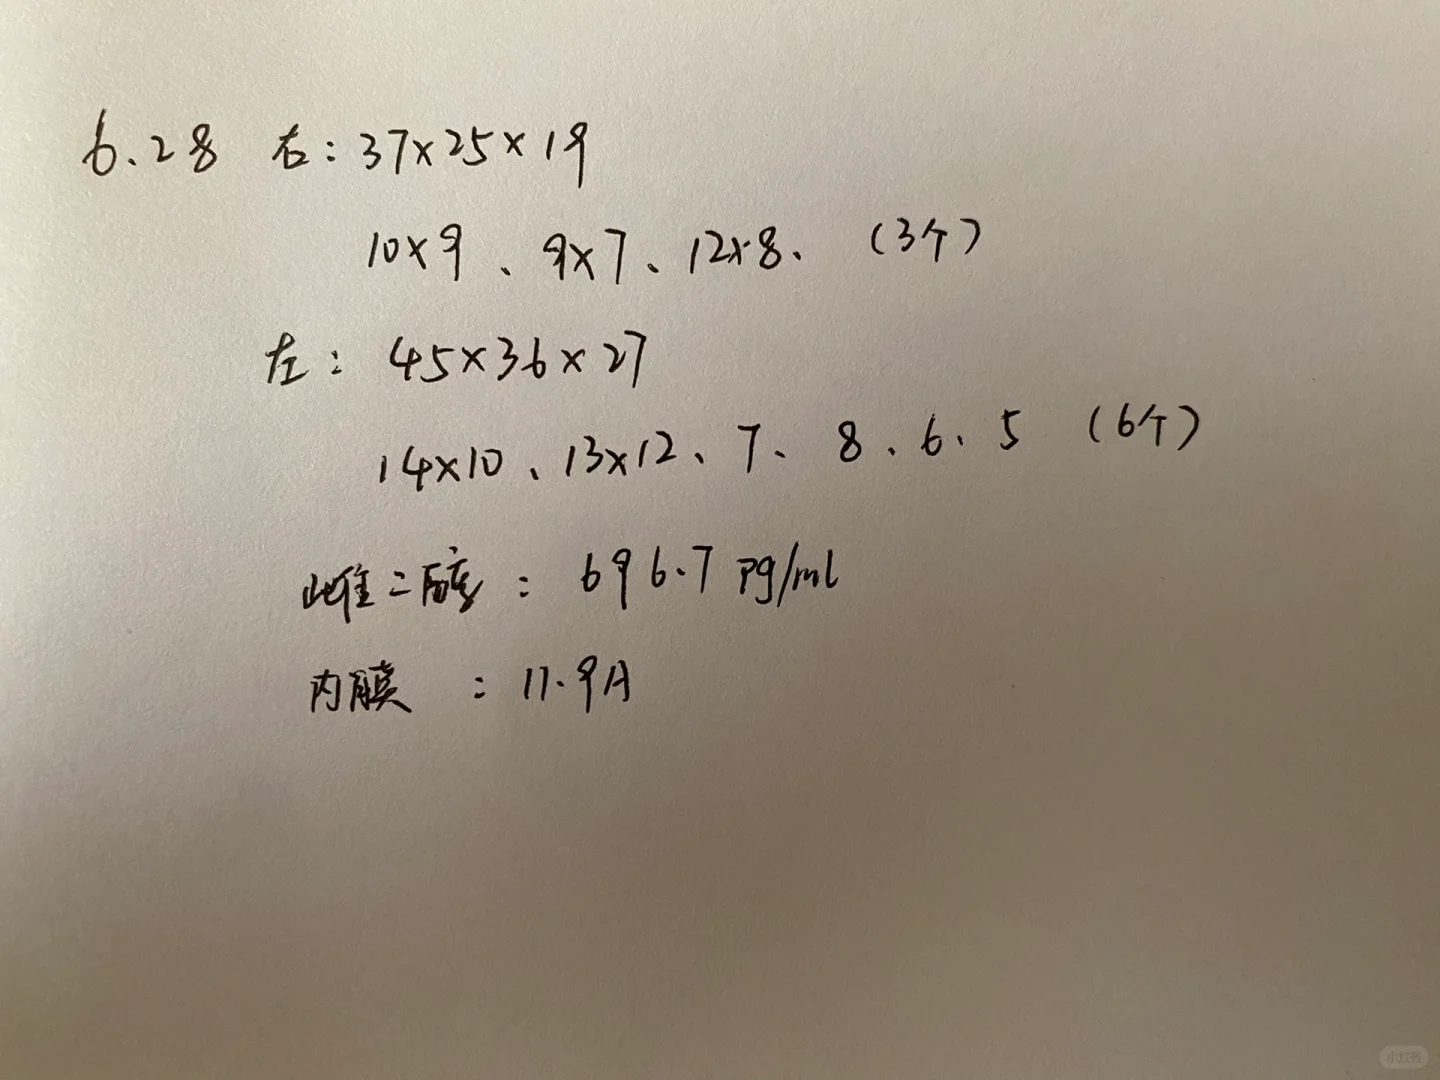 6.28 右：37×25×19
10×9、9×7、12×8、（3个）
左：45×36×27
14×10、13×12、7、8、6、5（6个）
雌二醇：696.7 pg/ml
内膜：11.9A
小红书